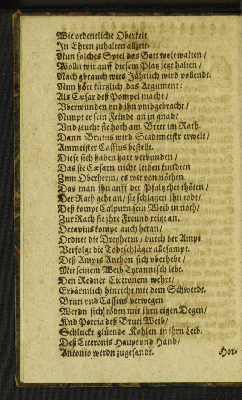 Wie ordentliche Oberkeit
In Ehren zuhalten allzeit.
Nun solches Spiel das Gott wolt walten/
Wölln wir auff diesem Platz jetzt halten/
Nach gbrauch wies Jährlich wird vollendt.
Nun höret kürtzlich das Argument:
Als Cæsar deß Pompei macht/
Uberwunden und ihn umbgebracht/
Nimpt er sein Feinde an in gnad/
Und zeucht sie hoch am Brett im Rath.
Dann Brutus wird Stadtmeistr erwelt/
Ammeister Cassius bestellt.
Diese sich haben hart verbunden/
Das sie Cæsarn nicht leiden kundten
Zum Oberherrn, es wer von nöhten
Das man ihn auff der Pfaltz thet tödten/
Der Rath geht an/ sie schlagen ihn todt/
Deß kompt Calpurnia sein Weib in noth/
Zur Rach sie ihre Freund reitzt an.
Octavius kompt auch heran/
Ordnet die Dreyherrn/ durch der Ampt
Verfolgt die Todtschläger allesampt.
Deß Ampts Anthon sich überhebt/
Mit seinem Weib Tyrannisch lebt.
Den Redner Ciceronem wehrt/
Erbärmlich hinricht mit dem Schwerdt.
Bruti und Cassius verwegen
Werdn sich tödten mit ihrn eigen Degen/
Und Porcia deß Bruti Weib/
Schluckt glüende Kohlen in ihrn Leib.
Deß Ciceronis Haupt und Hand/
Antonio werdn zugesandt.
Hor-